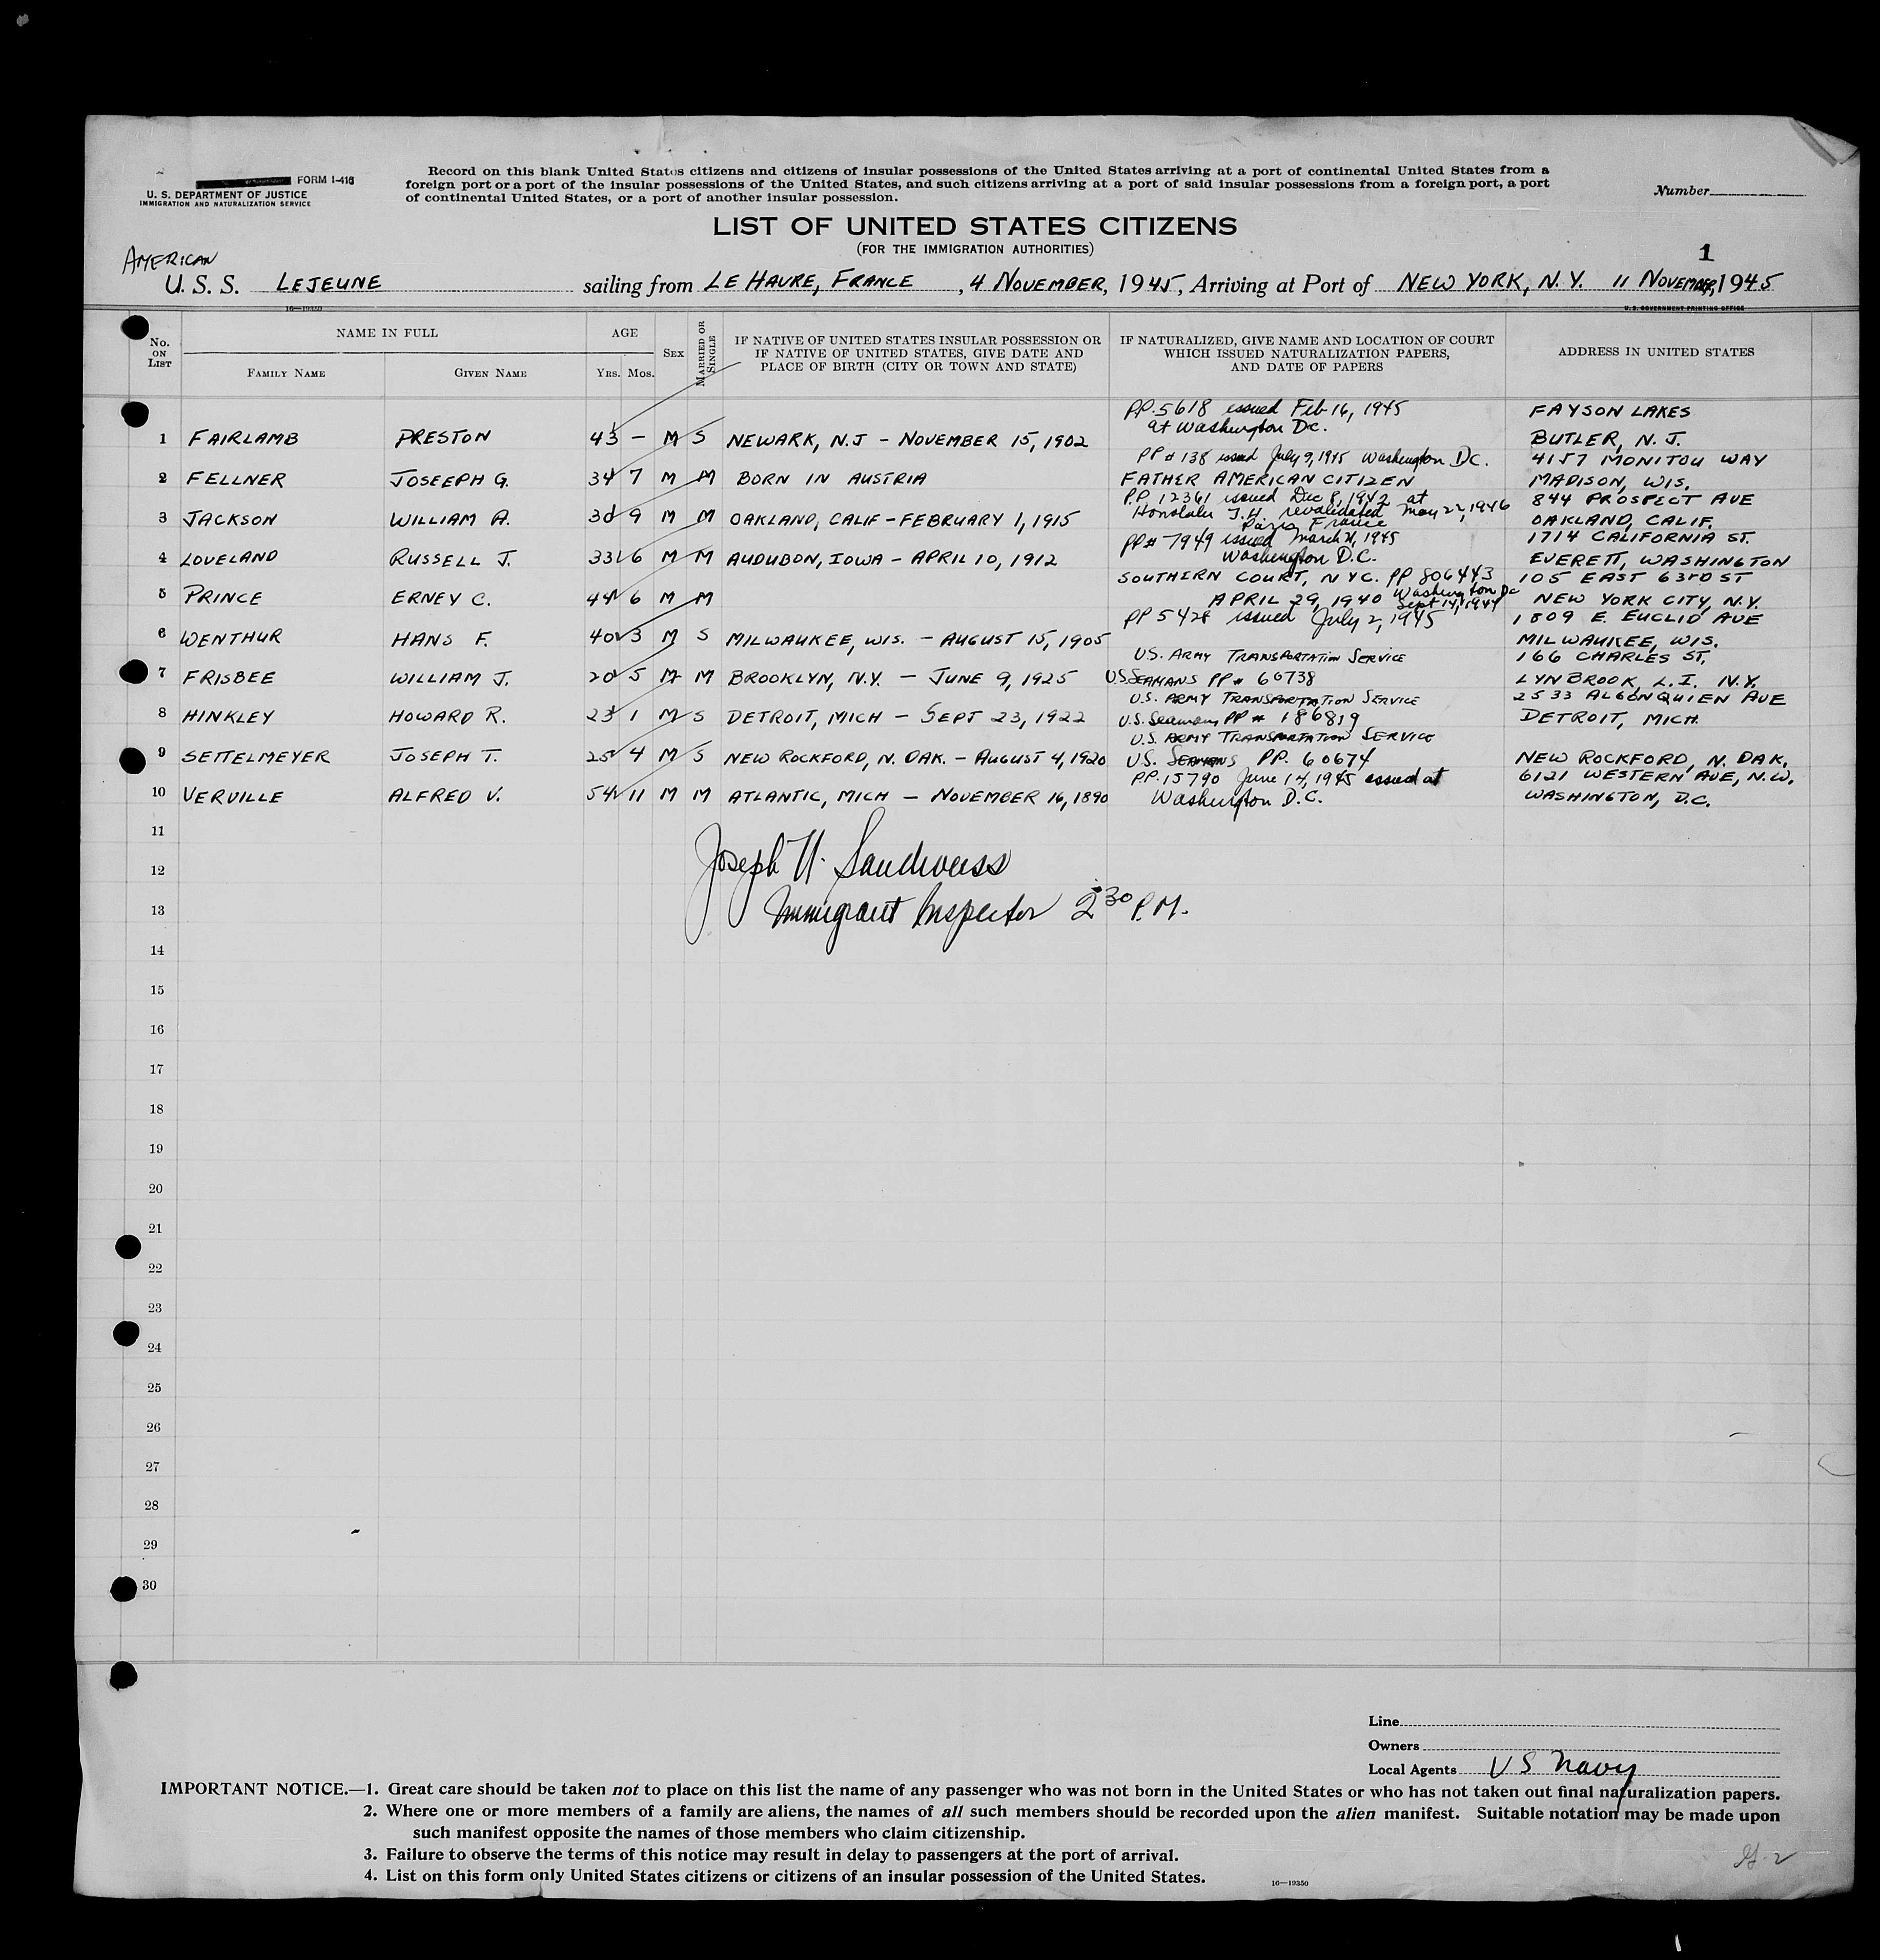 FORM I-415
U. S. DEPARTMENT OF JUSTICE
IMMIGRATION AND NATURALIZATION SERVICE
Record on this blank United States citizens and citizens of insular possessions of the United States arriving at a port of continental United States from a
foreign port or a port of the insular possessions of the United States, and such citizens arriving at a port of said insular possessions from a foreign port, a port
of continental United States, or a port of another insular possession.
Number
LIST OF UNITED STATES CITIZENS
(FOR THE IMMIGRATION AUTHORITIES)
1
AMERICAN
U. S. S. LEJEUNE sailing from LE HAVRE, FRANCE, 4 NOVEMBER, 1945, Arriving at Port of NEW YORK, N.Y. 11 NOVEMBER, 1945
16—19350
U. S. GOVERNMENT PRINTING OFFICE
No. ON LIST
NAME IN FULL
FAMILY NAME
GIVEN NAME
AGE
YRS. MOS.
SEX
MARRIED OR SINGLE
IF NATIVE OF UNITED STATES INSULAR POSSESSION OR
IF NATIVE OF UNITED STATES, GIVE DATE AND
PLACE OF BIRTH (CITY OR TOWN AND STATE)
IF NATURALIZED, GIVE NAME AND LOCATION OF COURT
WHICH ISSUED NATURALIZATION PAPERS,
AND DATE OF PAPERS
ADDRESS IN UNITED STATES
PP. 5618 issued Feb 16, 1945 FAYSON LAKES
at Washington D.C.
1 FAIRLAMB PRESTON 43 – M S NEWARK, N.J – NOVEMBER 15, 1902 BUTLER, N. J.
PP # 138 issued July 9, 1945 Washington D.C. 4157 MONITOU WAY
2 FELLNER JOSEEPH G. 34 7 M M BORN IN AUSTRIA FATHER AMERICAN CITIZEN MADISON, WIS.
P.P. 12361 issued Dec 8, 1942 at 844 PROSPECT AVE
Honolulu T.H. revalidated May 22, 1946
Paris France
3 JACKSON WILLIAM A. 30 9 M M OAKLAND, CALIF – FEBRUARY 1, 1915 OAKLAND, CALIF.
PP# 7949 issued March 21, 1945 1714 CALIFORNIA ST.
Washington D.C.
4 LOVELAND RUSSELL J. 33 6 M M AUDUBON, IOWA – APRIL 10, 1912 EVERETT, WASHINGTON
SOUTHERN COURT, N.Y.C. PP 806443 105 EAST 63RD ST
Washington DC
5 PRINCE ERNEY C. 44 6 M M APRIL 29, 1940 Sept 14, 1944 NEW YORK CITY, N.Y.
PP 5428 issued July 2, 1945 1809 E. EUCLID AVE
6 WENTHUR HANS F. 40 3 M S MILWAUKEE, WIS. – AUGUST 15, 1905 MILWAUKEE, WIS.
U.S. ARMY TRANSPORTATION SERVICE 166 CHARLES ST,
7 FRISBEE WILLIAM J. 20 5 M M BROOKLYN, N.Y. – JUNE 9, 1925 U.S. SEAMANS PP # 60738 LYNBROOK, L.I. N.Y.
U.S. ARMY TRANSPORTATION SERVICE 2533 ALGONQUIEN AVE
8 HINKLEY HOWARD R. 23 1 M S DETROIT, MICH – SEPT 23, 1922 U.S. Seamans PP # 186819 DETROIT, MICH.
U.S. ARMY TRANSPORTATION SERVICE
9 SETTELMEYER JOSEPH T. 25 4 M S NEW ROCKFORD, N. DAK. – AUGUST 4, 1920 U.S. SEAMANS PP. 60674 NEW ROCKFORD, N. DAK.
PP. 15790 June 14, 1945 issued at 6121 WESTERN AVE, N.W.
10 VERVILLE ALFRED V. 54 11 M M ATLANTIC, MICH – NOVEMBER 16, 1890 Washington D.C. WASHINGTON, D.C.
11
12
13
14
15
16
17
18
19
20
21
22
23
24
25
26
27
28
29
30
Joseph N. Sandweiss
Immigrant Inspector 2 30 P.M.
Line
Owners
Local Agents US Navy
IMPORTANT NOTICE.—1. Great care should be taken not to place on this list the name of any passenger who was not born in the United States or who has not taken out final naturalization papers.
2. Where one or more members of a family are aliens, the names of all such members should be recorded upon the alien manifest. Suitable notation may be made upon
such manifest opposite the names of those members who claim citizenship.
3. Failure to observe the terms of this notice may result in delay to passengers at the port of arrival.
4. List on this form only United States citizens or citizens of an insular possession of the United States.
16—19350